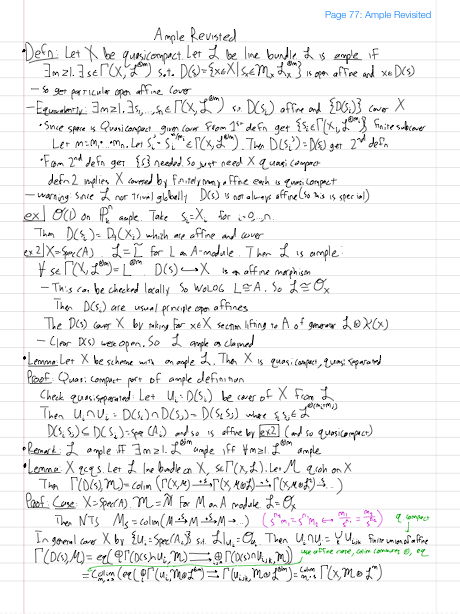 Page 77: Ample Revisited
Ample Revisited
• Defn: Let X be quasicompact. Let ℒ be line bundle ℒ is ample if
∃m≥1. ∃s∈Γ(X,ℒ^⊗m) s.t. D(s)={x∈X | s∉m_xℒ_x^⊗m} is open affine and x∈D(s)
– So get particular open affine cover
– Equivalently: ∃m≥1. ∃s₁,...,sₙ∈Γ(X,ℒ^⊗m) s.t. D(sᵢ) affine and {D(sᵢ)} cover X
• Since space is Quasicompact, given cover from 1st defn get {sᵢ∈Γ(Xᵢ,ℒ^mᵢ)} finite subcover
Let m=m₁...mₙ. Let sᵢ'=sᵢ^m/mᵢ∈Γ(X,ℒ^⊗m). Then D(sᵢ')=D(sᵢ) get 2nd defn
• From 2nd defn get {s} needed so just need X quasicompact
defn 2 implies X covered by finitely many affine each is quasicompact
– warning: Since ℒ not trivial globally D(s) is not always affine (so this is special)
ex1 O(1) on ℙⁿ ample. Take sᵢ=Xᵢ for i=0,..,n.
Then D(sᵢ)=D₊(Xᵢ) which are affine and cover
ex2 X=Spec(A) ℒ=L̃ for L an A-module. Then ℒ is ample:
∀s∈Γ(X,ℒ^⊗m)=L^⊗m. D(s)↪X is an affine morphism
– This can be checked locally so WOLOG L≅A. So ℒ≅O_X
Then D(sᵢ) are usual principle open affines
The D(s) cover X by taking for x∈X section lifting to A of generator ℒ⊗K(x)
– Clear D(s) were open. So ℒ ample as claimed
• Lemma: Let X be scheme with an ample ℒ. Then X is quasicompact, quasiseparated
Proof: Quasicompact part of ample definition
Check quasiseparated: Let Uᵢ=D(sᵢ) be cover of X from ℒ
Then Uᵢ∩Uⱼ=D(sᵢ)∩D(sⱼ)=D(sᵢsⱼ) where sᵢsⱼ∈ℒ^⊗(mᵢ+mⱼ)
D(sᵢsⱼ)⊆D(sᵢ)=Spec(Aᵢ) and so is affine by ex2 (and so quasicompact)
• Remark: ℒ ample iff ∃m≥1. ℒ^⊗m ample iff ∀m≥1. ℒ^⊗m ample
• Lemma: X qcqs. ℒ line bundle on X, s∈Γ(X,ℒ). Let M qcoh on X
Then Γ(D(s),M)=colim(Γ(X,M)→Γ(X,M⊗ℒ)→Γ(X,M⊗ℒ²)→...)
Proof: Case: X=Spec(A). M=M̃ for M an A module. ℒ=O_X
Then NTS M_s=colim(M→M→M→...)
In general cover X by {Uᵢ=Spec(Aᵢ)} s.t. ℒ|Uᵢ=O_Uᵢ. Then Uᵢ∩Uⱼ=∪Uᵢⱼₖ finite union of affine
q. compact
use affine case, colim commutes ⊕, eq
Γ(D(s),M)=eq(⊕Γ(D(s)∩Uᵢ,M)⇉⊕Γ(D(s)∩Uᵢⱼₖ,M))
=colim(eq(⊕Γ(Uᵢ,M⊗ℒ^⊗m)⇉Γ(Uᵢⱼₖ,M⊗ℒ^⊗m))=colim Γ(X,M⊗ℒ^m)